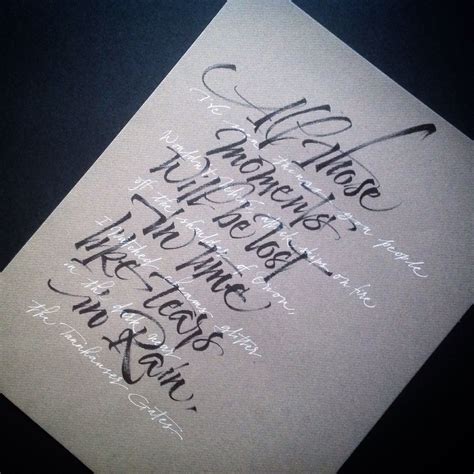 All Those
moments
Will be lost
In time
like tears
in Rain.
I've seen things you people
Wouldn't ships on fire
off the shoulder of Orion,
I watched glitter
in the dark near
the Tannhauser Gates.